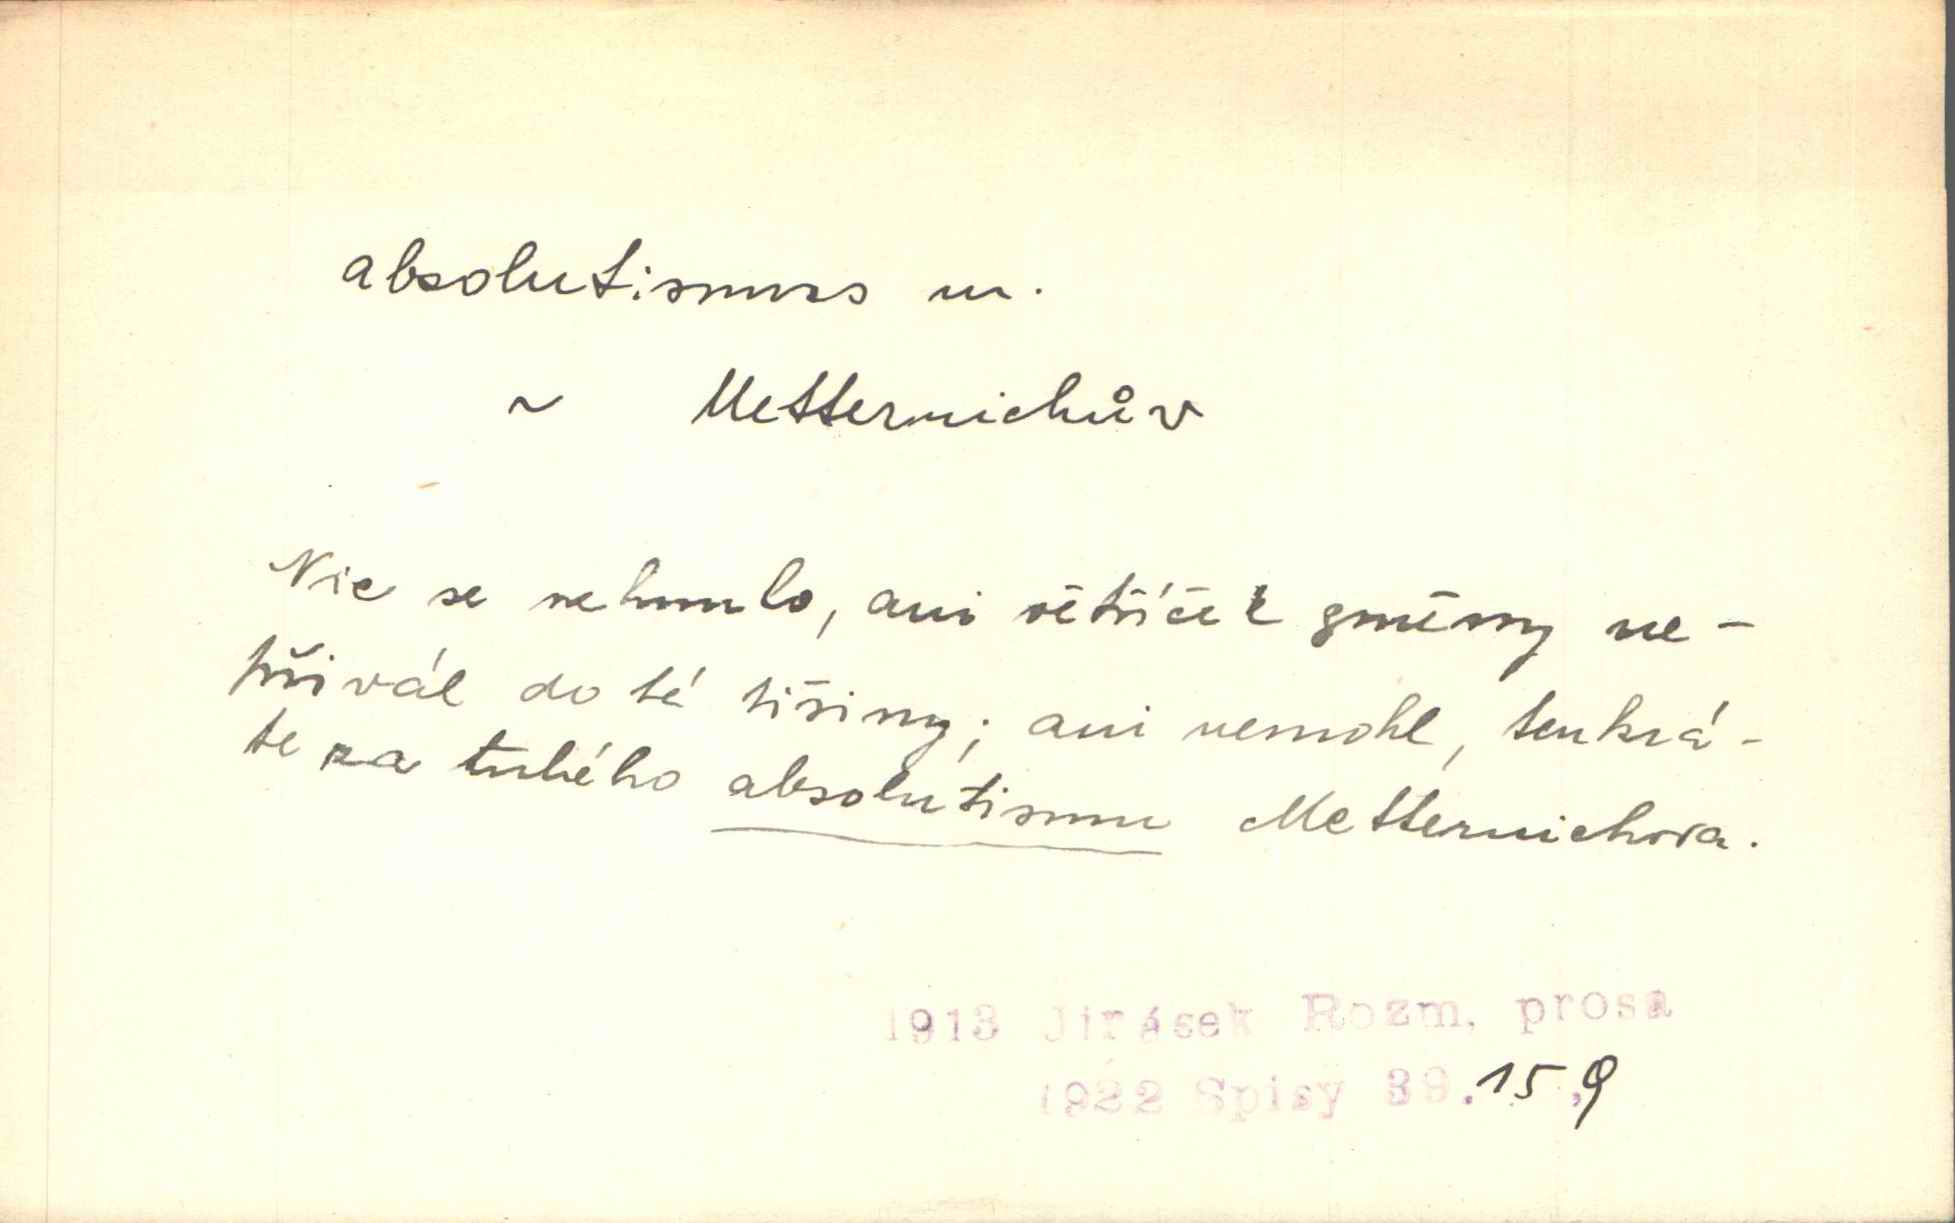 absolutismus m.
~ Metternichův
Nic se nehnulo, ani větříček změny ne-
přivál do té tišiny; ani nemohl, tenkrá-
te za tuhého absolutismu Metternichova.
1913 Jirásek Rozm. prosa
1922 Spisy 39.15,9